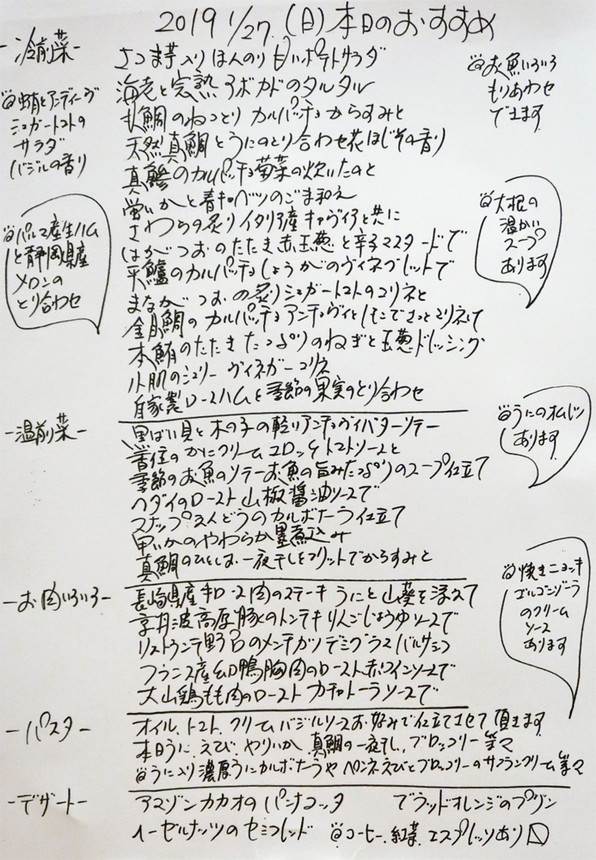 2019 1/27.(日)本日のおすすめ
-冷前菜-
さつま芋入りほんのり甘いポテトサラダ
海老と完熟アボカドのタルタル
鯛のねっとりカルパッチョからすみと
天然真鯛とうにのとり合わせ花ほじその香り
真鯵のカルパッチョ菊菜の炊いたのと
蛍いかと春キャベツのごま和え
さわらの炙りイタリア産キャヴィアと共に
はがつおのたたき赤玉葱と辛子マスタードで
平鱸のカルパッチョしょうがのヴィネグレットで
まながつおの炙りシュガートマトのマリネと
金目鯛のカルパッチョアンチョヴィとしそでさっとマリネして
本鮪のたたきたっぷりのねぎと玉葱ドレッシング
小肌のシェリーヴィネガーマリネ
自家製ロースハムと季節の果実のとり合わせ
@蛸とアンディーブ
シュガートマトの
サラダ
バジルの香り
@パルマ産生ハム
と静岡県産
メロンの
とり合わせ
@お魚いろいろ
もりあわせ
できます
@大根の
温かい
スープ
あります
-温前菜-
黒ばい貝と木の子の軽いアンチョヴィバターソテー
香住のかにクリームコロッケトマトソースと
季節のお魚のソテーお魚の旨みたっぷりのスープ仕立て
ヘダイのロースト山椒醤油ソースで
スナップえんどうのカルボナーラ仕立て
甲いかのやわらか墨煮込み
真鯛のひとしお一夜干しとフリットでからすみと
@うにのオムレツ
あります
-お肉いろいろ-
長崎県産和ロース肉のステーキうにと山葵を添えて
京丹波高原豚のトンテキりんごじょうゆソースで
リストランテ野呂のメンチカツデミグラスバルサミコ
フランス産幼鴨胸肉のロースト赤ワインソースで
大山鶏もも肉のローストカチャトーラソースで
@焼きニョッキ
ゴルゴンゾーラ
のクリーム
ソース
あります
-パスタ-
オイル、トマト、クリームバジルソースお好みで仕立てさせて頂きます
本日うに、えび、やりいか、真鯛の一夜干し、ブロッコリー等々
@うに入り濃厚うにカルボナーラやペンネえびとブロッコリーのサフランクリーム等々
-デザート-
アマゾンカカオのパンナコッタ ブラッドオレンジのプリン
ヘーゼルナッツのセミフレッド @コーヒー、紅茶、エスプレッソあり